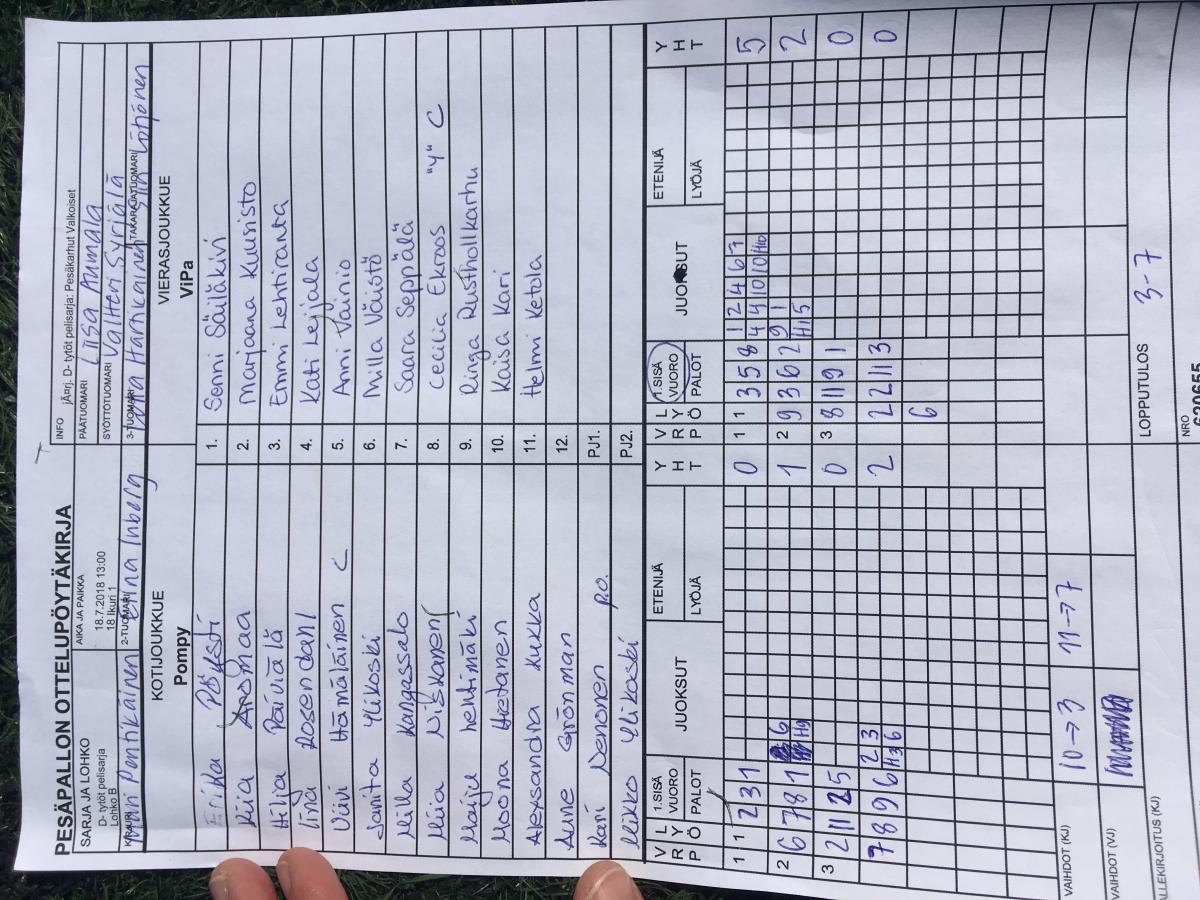 PESÄPALLON OTTELUPÖYTÄKIRJA
SARJA JA LOHKO
D- tytöt pelisarja
Lohko B
AIKA JA PAIKKA
18.7.2018 13:00
18 Ikuri 1
INFO
jÄ¤rj. D- tytöt pelisarja: Pesäkarhut Valkoiset
PÄÄTUOMARI Liisa Aumala
SYÖTTÖTUOMARI Valtteri Syrjälä
KIRJURI Pentikäinen
2-TUOMARI Inberg
3-TUOMARI Harikainen
TAKARAJATUOMARI
KOTIJOUKKUE
Pompy
VIERASJOUKKUE
ViPa
Erika Pöysti 1. Senni Säiläkivi
Kiia Aromaa 2. Marjaana Kuusisto
Hilja Päivälä 3. Emmi Lehtiranta
Tinja Rosendahl 4. Kati Leijala
Viivi Hämäläinen C 5. Anni Vainio
Janita Ylikoski 6. Milla Väistö
Milla Kangassalo 7. Saara Seppälä
Miia Niskanen 8. Cecilia Ekroos "y" C
Maiju Lehtimäki 9. Ringa Rusthollkarhu
Moona Hietanen 10. Kaisa Kari
Alexsandra Kukka 11. Helmi Ketola
Aune Grönman 12.
Kari Nenonen p.o. PJ1.
Mikko Ylikoski PJ2.
VRP LYÖ 1.SISÄVUORO PALOT JUOKSUT ETENIJÄ LYÖJÄ YHT
VRP LYÖ 1.SISÄVUORO PALOT JUOKSUT ETENIJÄ LYÖJÄ YHT
1 1 2 3 1 0
1 1 3 5 8 1 2 4 6 7 5
4 4 10 10 H10
2 6 7 8 1 6 1
H9
2 9 3 6 2 9 1 2
H1 5
3 2 11 2 5 0
3 8 11 9 1 0
7 8 9 6 2 3 2
H3 6
2 2 11 3 0
6
VAIHDOT (KJ) 10→3 11→7
VAIHDOT (VJ)
LOPPUTULOS 3-7
ALLEKIRJOITUS (KJ)
NRO
620655